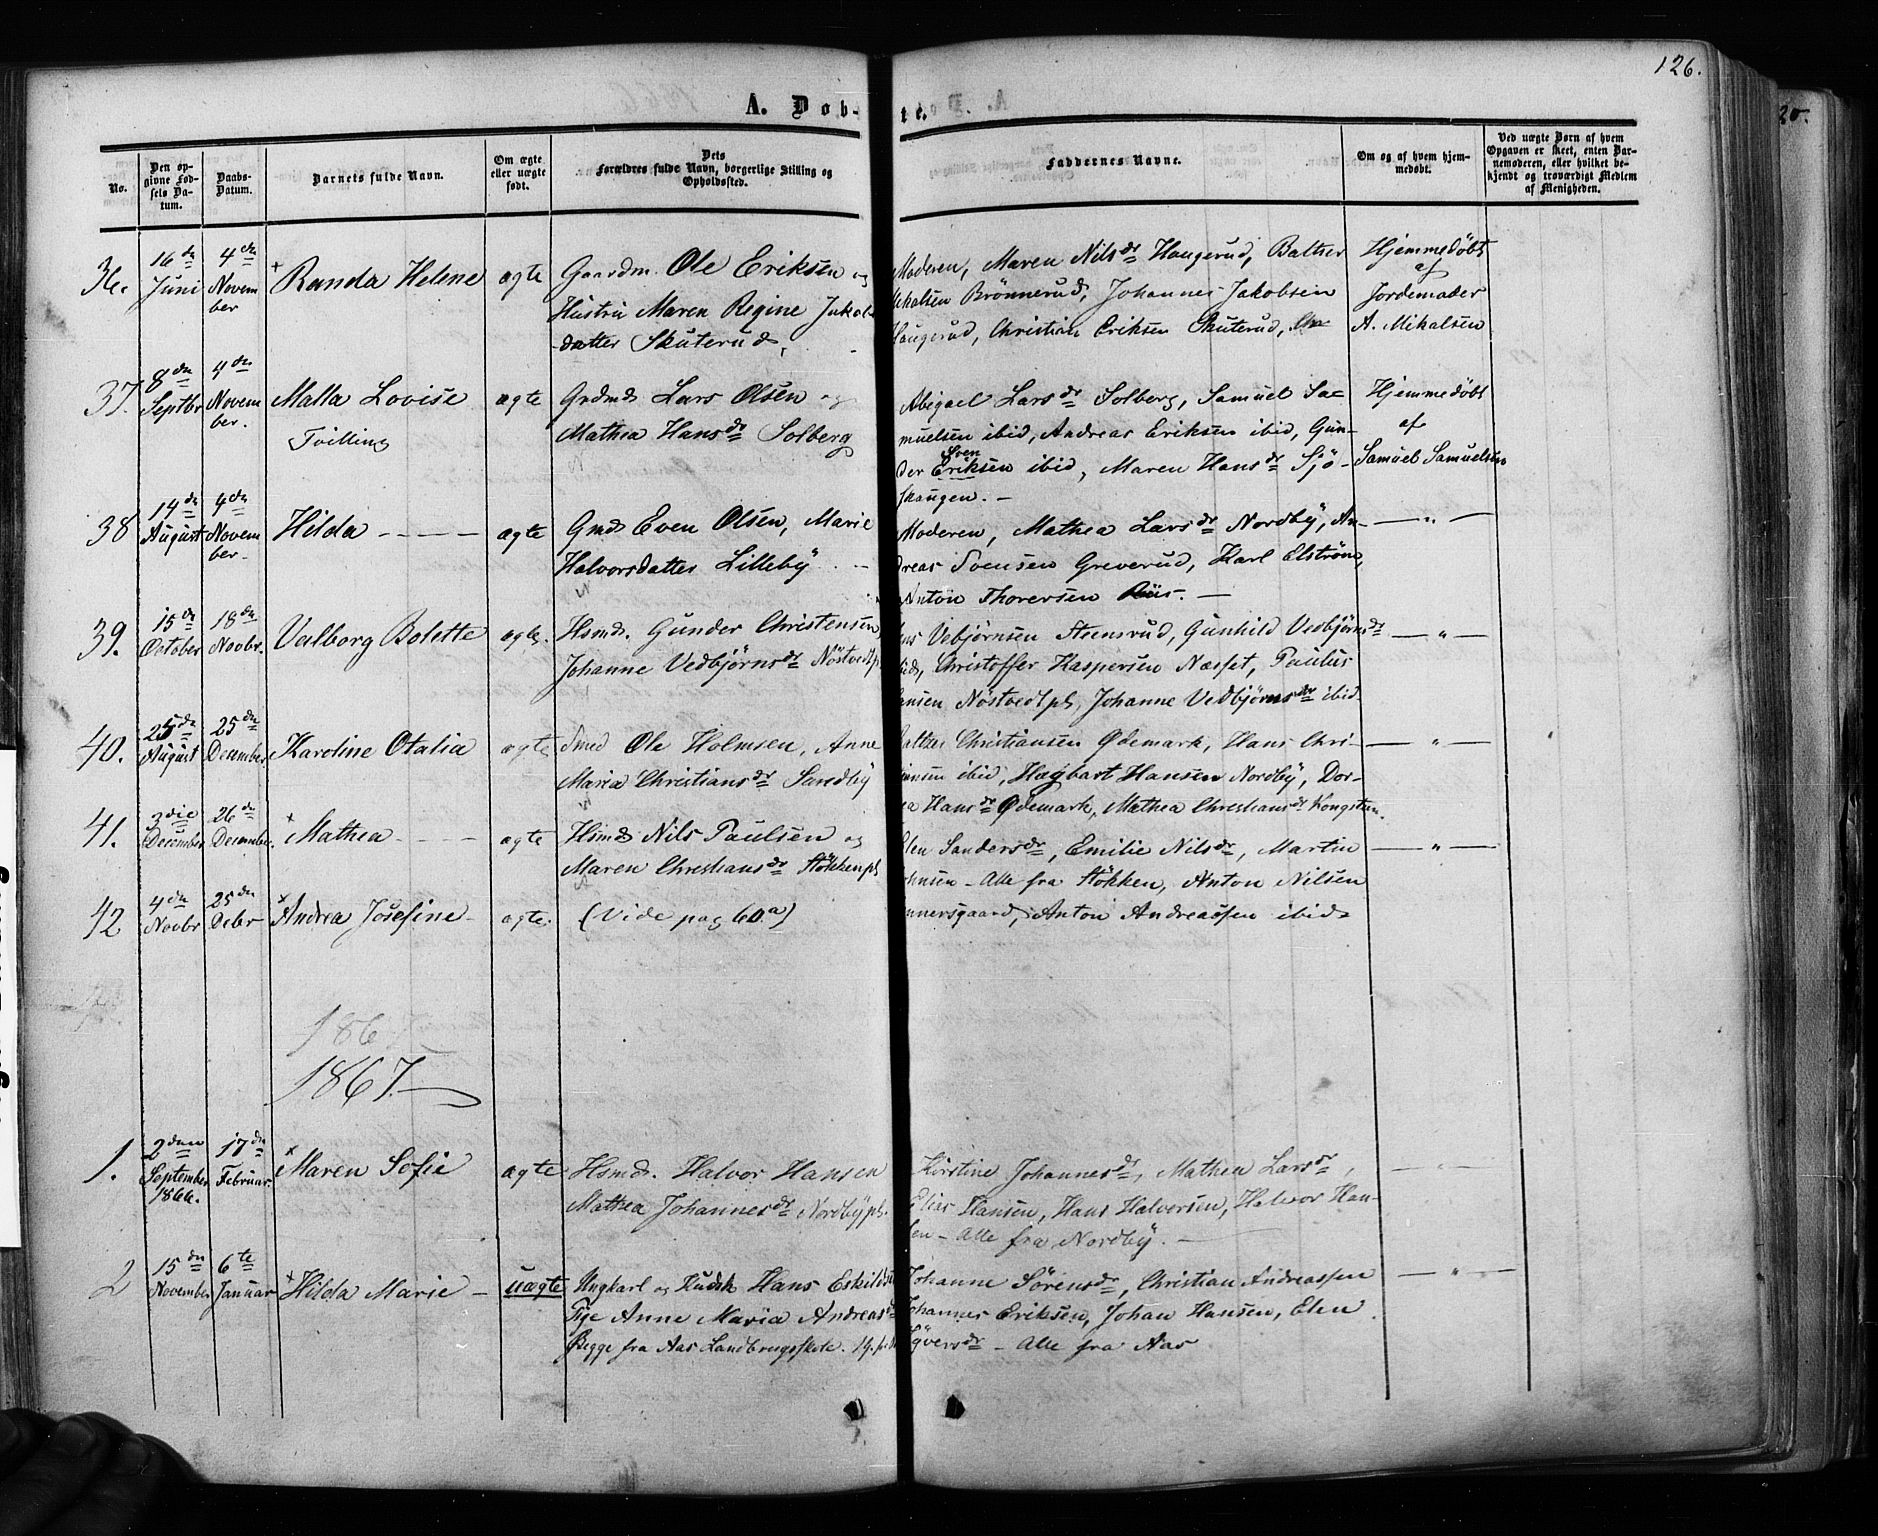 126.
20.
A. Døb-
te.
No.
Den op-
givne Fød-
sels Da-
tum.
Daabs-
Datum.
Barnets fulde Navn.
Om ægte
eller uægte
født.
Dets
Forældres fulde Navn, borgerlige Stilling og
Opholdssted.
Faddernes Navne.
Om og af hvem hjem-
medøbt.
Ved uægte Børn af hvem
Opgaven er skeet, enten Bar-
nemoderen, eller hvilket be-
kjendt og troværdigt Medlem
af Menigheden.
36.
16 dn
Juni
4 dn
Novem
ber
Randa Helene
ægte
Gaardm. Ole Eriksen og
Hustru Maren Regine Jakobs
datter Skuterud,
Moderen, Maren Nilsdr Haugerud, Baltser
Mikalsen Brønnerud, Johannes Jakobsen
Haugerud, Christian Eriksen Skuterud,
Hjemmedøbt
af
Jordemoder
A. Mikalsen
37.
8 dn
Septbr
4 dn
Novem
ber.
Malla Lovise
Tvilling
ægte
Grdmd Lars Olsen og
Mathea Hansdr Solberg
Abigael Larsdr Solberg, Samuel Sa-
muelsen ibid, Andreas Eriksen ibid, Gun-
der Eriksen ibid, Maren Hansdr Sjö-
Sven
skaugen. -
Hjemmedøbt
af
Samuel Samuelsen
38
14 dn
August
4 dn
Novem
ber.
Hilda - - - -
ægte
Gmd Even Olsen, Marie
Halvorsdatter Lilleby. -
Moderen, Mathea Larsdr Nordby, An-
dreas Svensen Greverud, Karl Elström,
Anton Thoresen Riis. -
— " —
39.
15 dn
October
18 dn
Novbr.
Valborg Bolette
ægte.
Hsmd. Gunder Christensen,
Johanne Vedbjørnsdr Nöstvedtpl
Vebjørnsen Steensrud, Gunhild Vedbjørnsdr
ibid, Christoffer Kaspersen Næsset, Paulus
Hansen Nöstvedtpl, Johanne Vedbjørnsdr ibid
— " —
40.
25 dn
August
25 dn
December
Karoline Otalia
ægte
Smed Ole Holmsen, Anne
Maria Christiansdr Sandby
Baltzer Christiansen Ødemark, Hans Chri-
stiansen ibid, Hagbart Hansen Nordby, Dor-
thea Hansdr Ødemark, Mathea Christiansdr Kongstun.
— " —
41.
3die
December
26 dn
December.
Mathea - - - -
ægte
Hsmd Nils Paulsen og
Maren Christiansdr Støkkenpl
Elen Sandersdr, Emilie Nilsdr, Martin
Johnsen - Alle fra Støkken, Anton Nilsen
— " —
42
4 dn
Novbr
25 dn
Debr
Andrea Josefine -
ægte.
(Vide pag 60.a)
Anton Andreassen ibid
1867
1867. —
1.
2den
September
1866.
17 dn
Februar.
Maren Sofie
ægte
Hsmd. Halvor Hansen
Mathea Johannesdr Nordbypl.
Kirstine Johannesdr, Mathea Larsdr,
Elias Hansen, Hans Halvorsen, Halvor Han-
sen - Alle fra Nordby. -
— " —
2
15 dn
November
6te
Januar
Hilda Marie -
uægte
Ungkarl og Kudsk Hans Eskilds
Pige Anne Maria Andreasdr
Begge fra Aas Landbrugsskole. 19.
Johanne Sörensdr, Christian Andreassen
Johannes Eriksen, Johan Hansen, Elen
Syversdr - Alle fra Aas
— " —